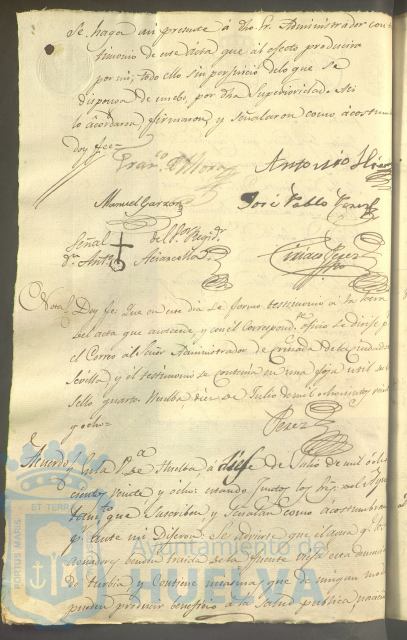 Se haga un presente á dho. Sr. Administrador con
timonio de este Acta que al efecto producira
por mi; todo ello sin perjuicio de lo que se
disponga de nuebo, por dha Superioridad. Asi
lo acordaron, firmaron, y señalaron como acostum
doy fee=
Fran.co de Mora
Antonio
Manuel Garzon
José Pablo Perez
Señal del Sor. Regidr.
Dn. Antº
Perez
Nota
Doy fee que en este dia se formó testimonio á la letra
del acta que antecede, y con el correspondte. oficio se dirije p.r
el Correo al Señor Administrador de Cruzada de la Ciudad de
Sevilla, y el testimonio se contenia en una foja util
sello quarto. Huelba diez de Julio de mil ochocientos veinte
y ocho=
Perez
Acuerdo
En la Vª de Huelba, á diese de Julio de mil ocho
cientos veinte y ocho: estando juntos los Sres. del Ayun
tamto. que suscriben y señalan como acostumbran
p.r ante mi Dijeron: Se advierte que el agua q.e los
aguadores benden traida de la fuente vieja está
turbia y contiene que de ningun modo
puede producir beneficio á la salud publica
PORTUS MARIS ET TERRÆ
Ayuntamiento de
HUELVA